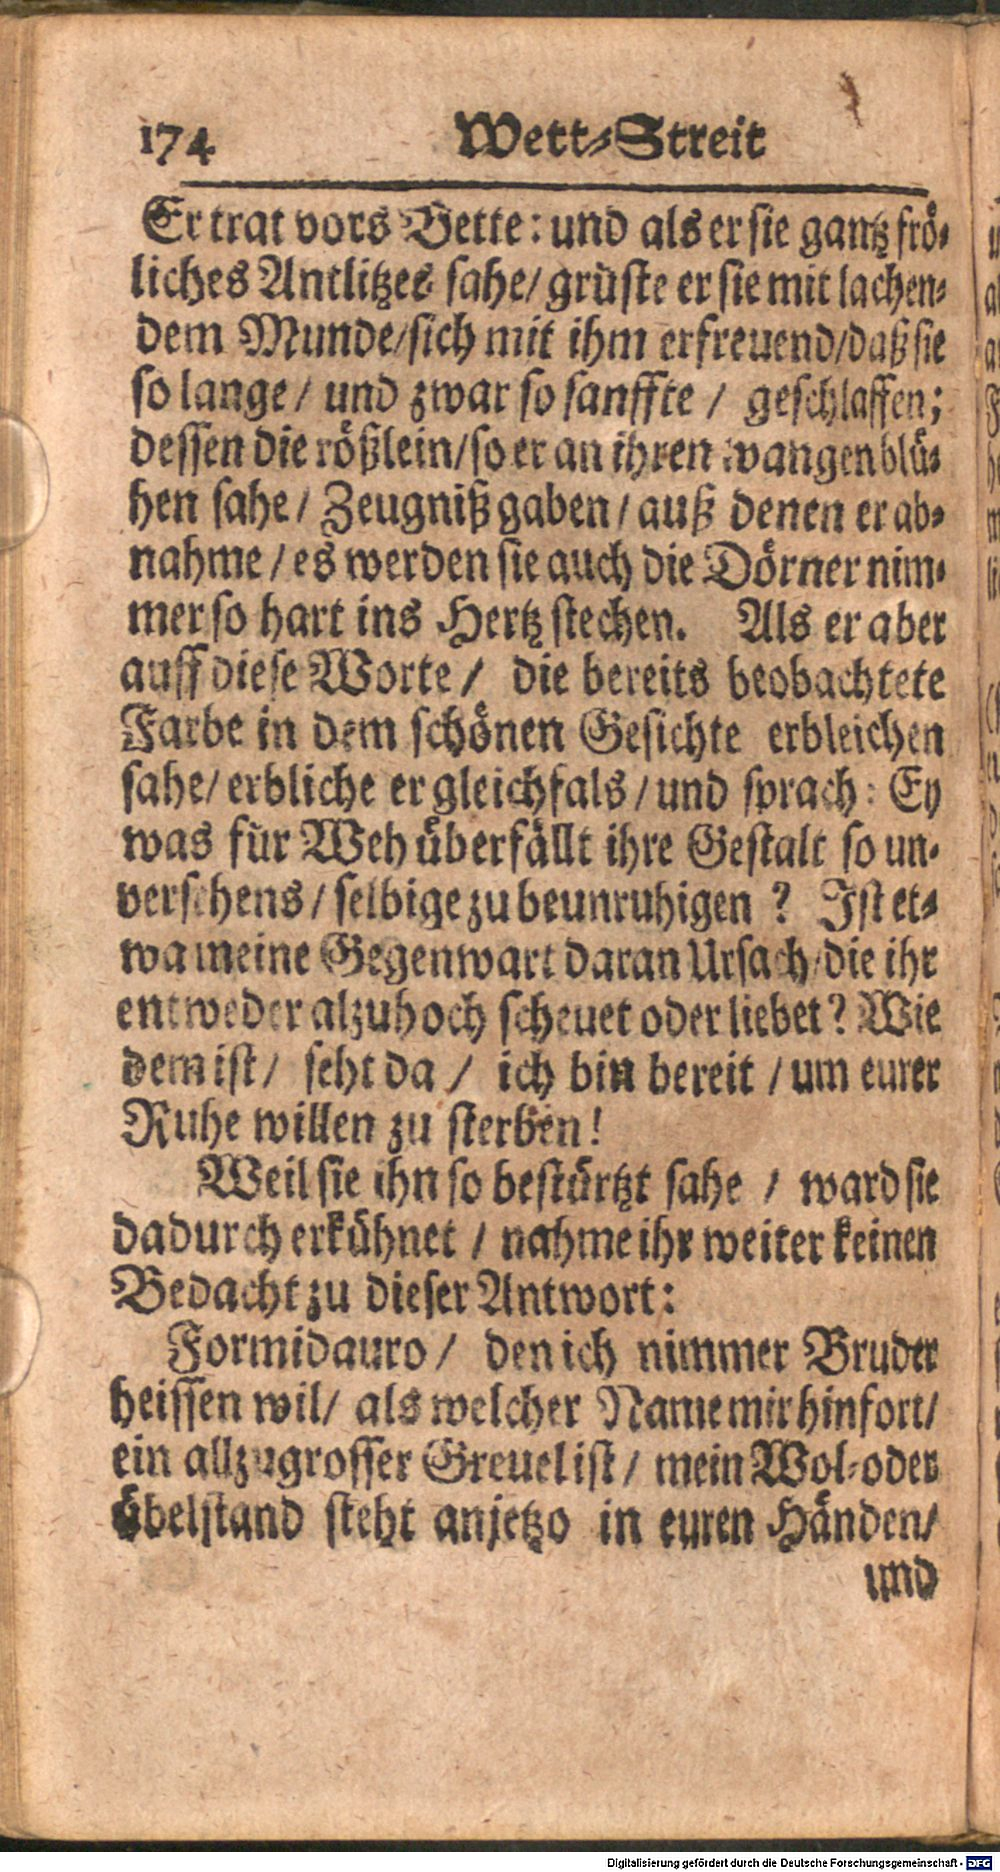 174 Wett-Streit
Er trat vors Bette: und als er sie gantz frö-
liches Antlitzes sahe/ grüste er sie mit lachen-
dem Munde/sich mit ihm erfreuend/daß sie
so lange/ und zwar so sanffte/ geschlaffen;
dessen die rößlein/so er an ihren wangen blü-
hen sahe/ Zeugniß gaben/ auß denen er ab-
nahme/ es werden sie auch die Dörner nim-
mer so hart ins Hertz stechen. Als er aber
auff diese Worte/ die bereits beobachtete
Farbe in dem schönen Gesichte erbleichen
sahe/ erbliche er gleichfals/ und sprach: Ey
was für Weh überfällt ihre Gestalt so un-
versehens/ selbige zu beunruhigen? Ist et-
wa meine Gegenwart daran Ursach/die ihr
entweder alzuhoch scheuet oder liebet? Wie
dem ist/ seht da/ ich bin bereit/ um eurer
Ruhe willen zu sterben!
Weil sie ihn so bestürtzt sahe/ ward sie
dadurch erkühnet/ nahme ihr weiter keinen
Bedacht zu dieser Antwort:
Formidauro/ den ich nimmer Bruder
heissen wil/ als welcher Name mir hinfort/
ein allzugrosser Greuel ist/ mein Wol-oder
übelstand steht anjetzo in euren Händen/
und
Digitalisierung gefördert durch die Deutsche Forschungsgemeinschaft - DFG